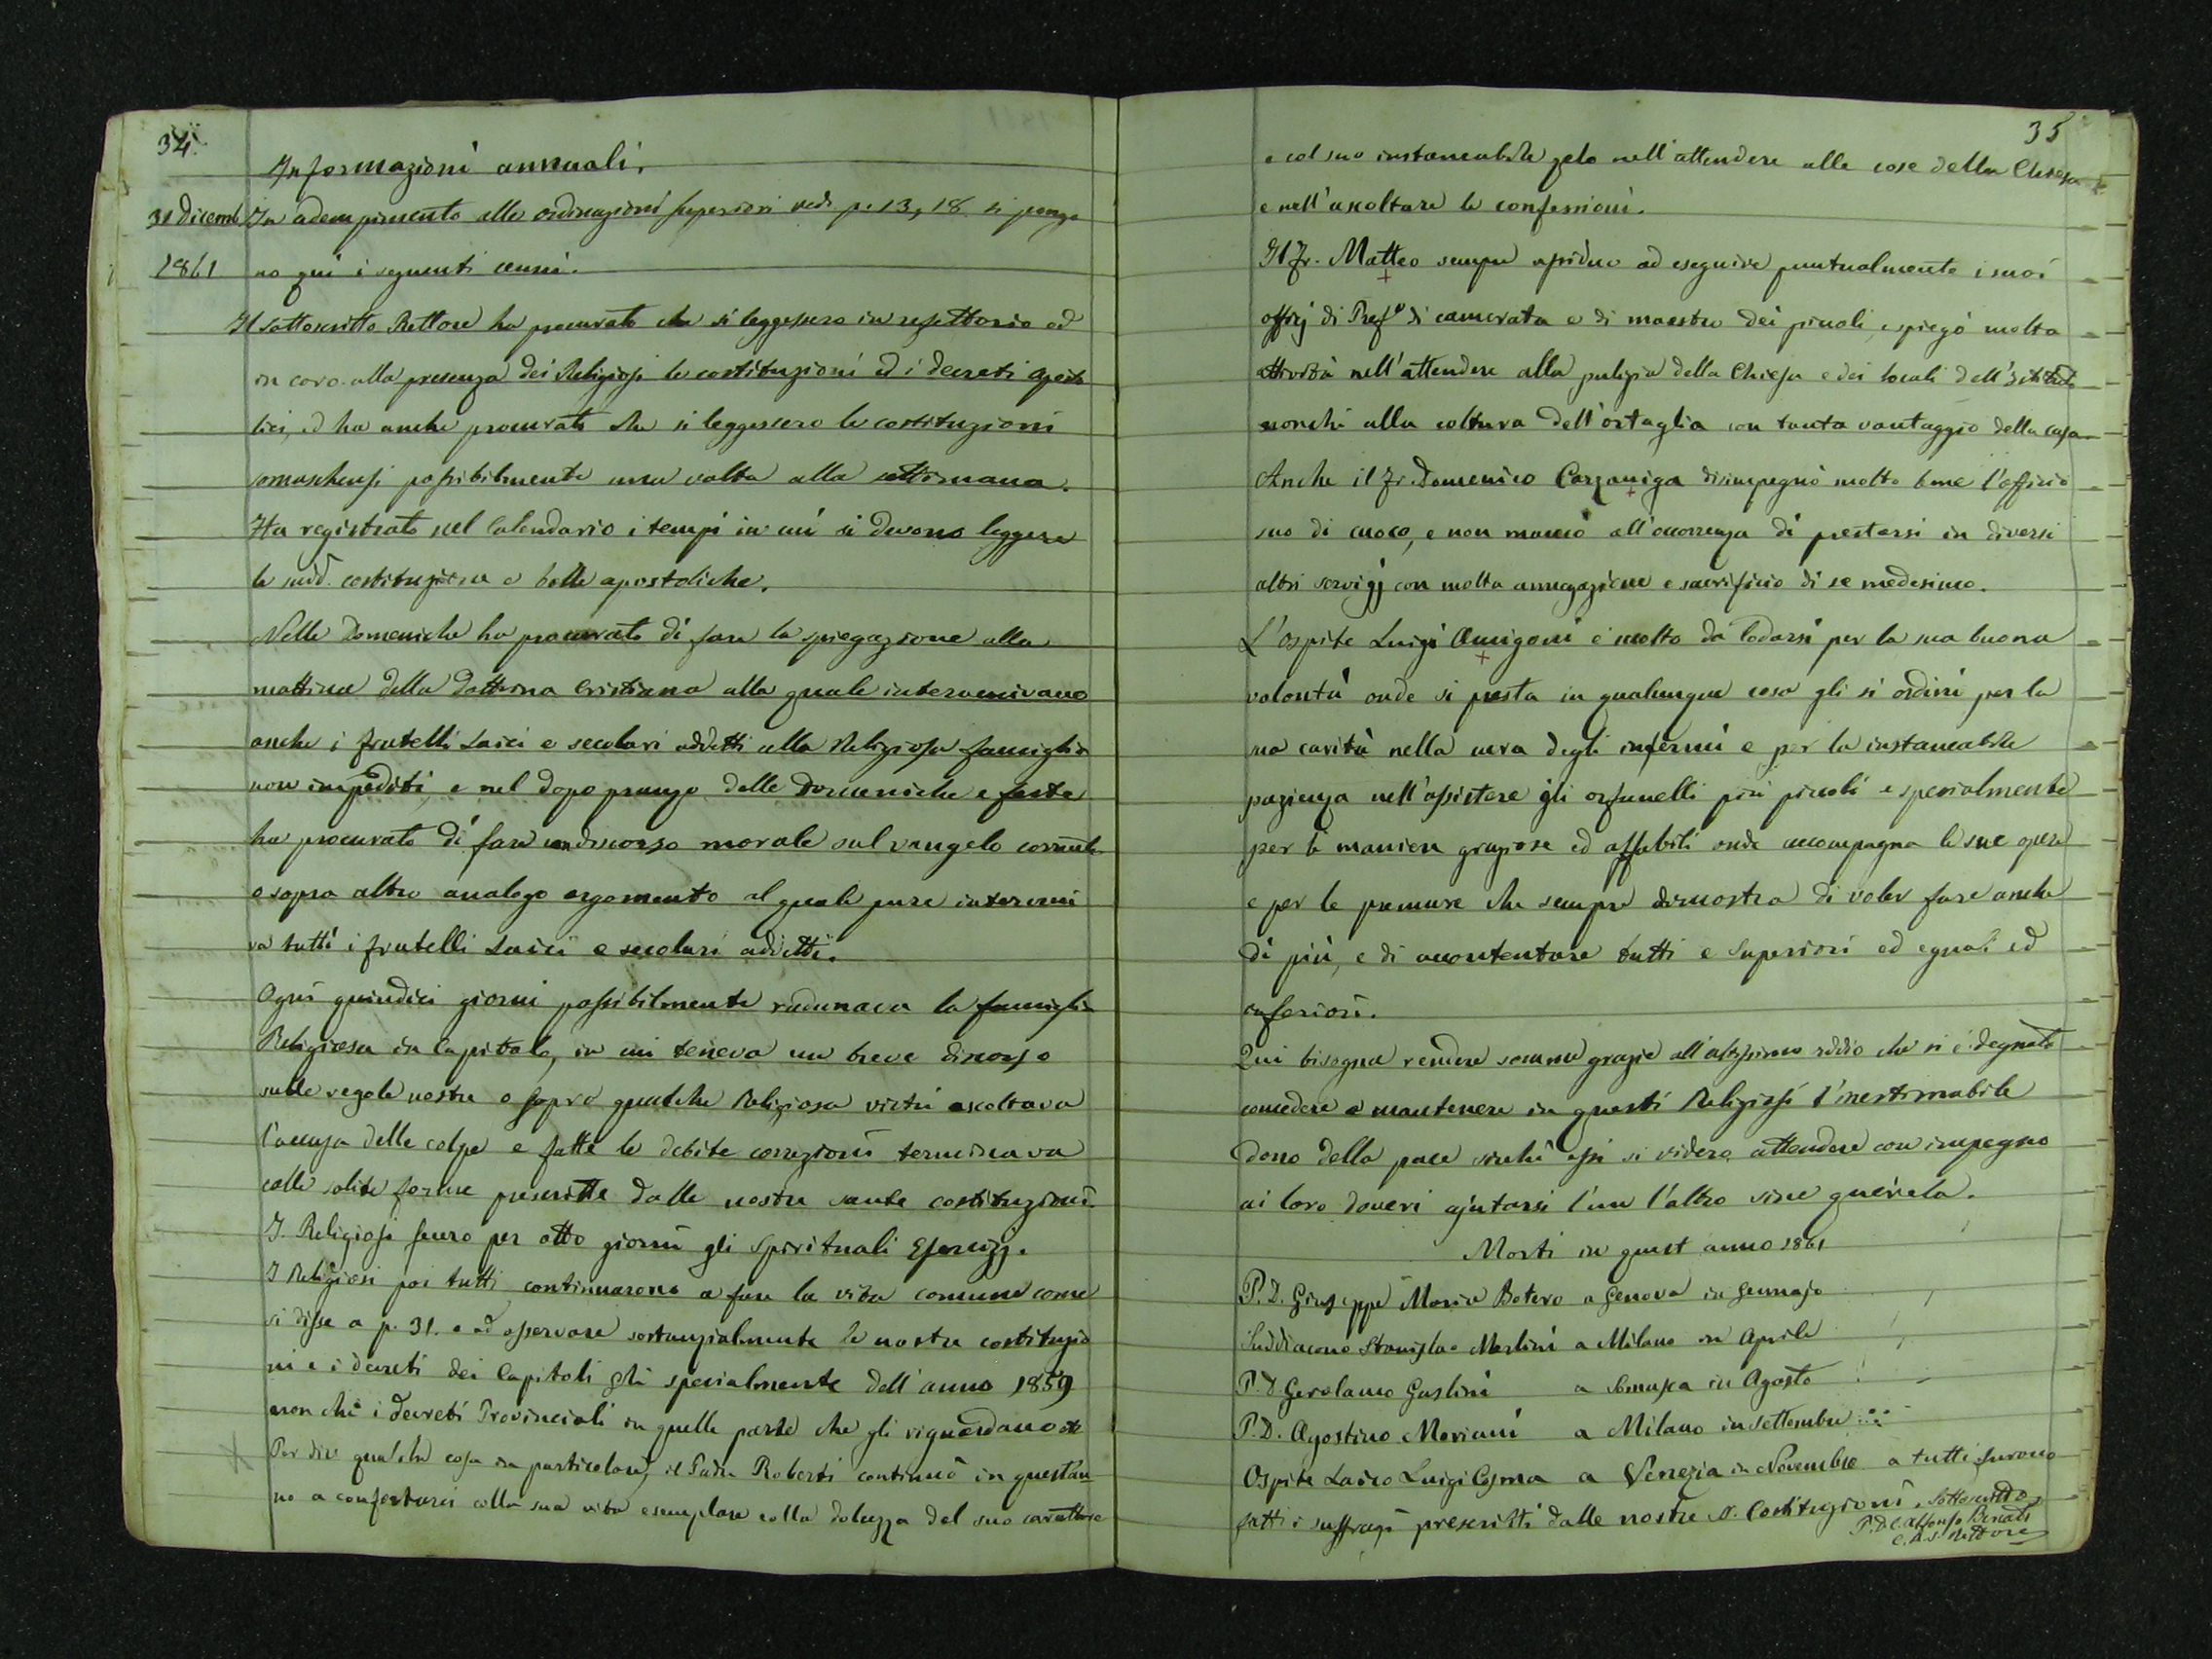 34.
Informazioni annuali.
31 Dicemb In adempimento alle ordinazioni superiori ved. p. 13, 18 si pongo
1861 no qui i seguenti cenni.
Il sottoscritto Rettore ha procurato che si leggessero in refettorio ed
in coro alla presenza dei Religiosi le costituzioni ed i decreti aposto
lici, ed ha anche procurato che si leggessero le costituzioni
somaschensi possibilmente una volta alla settimana.
Ha registrato nel Calendario i tempi in cui si devono leggere
le sudd. costituzione e bolle apostoliche.
Nelle Domeniche ha procurato di fare la spiegazione alla
mattina della Dottrina Cristiana alla quale intervenivano
anche i fratelli Laici e secolari addetti alla Religiosa famiglia
non impediti, e nel dopo pranzo delle Domeniche e feste
ha procurato di fare un discorso morale sul vangelo corrente
e sopra altro analogo argomento al quale pure interveni
va tutti i fratelli Laici e secolari addetti.
Ogni quindici giorni possibilmente radunava la famiglia
Religiosa in Capitolo, in cui teneva un breve discorso
sulle regole nostre o sopra qualche Religiosa virtù ascoltava
l'accusa delle colpe e fatte le debite correzioni terminava
colle solite forme prescritte dalle nostre sante costituzioni.
I Religiosi fecero per otto giorni gli Spirituali Esercizj.
I Religiosi poi tutti continuarono a fare la vita comune come
si disse a p. 31. e ad osservare sostanzialmente le nostre costituzio
ni e i decreti dei Capitoli gli specialmente dell'anno 1859
non chè i decreti Provinciali in quelle parte che gli riguardano
Per dir qualche cosa in particolare, il Padre Roberti continuò in quest'an
no a confortarci colla sua vita esemplare colla dolcezza del suo carattere
35
e col suo instancabile zelo nell'attendere alle cose della Chiesa
e nell'ascoltare le confessioni.
Il Fr. Matteo sempre assiduo ad eseguire puntualmente i suoi
offizj di Prefº di camerata e di maestro dei piccoli, spiegò molta
attività nell'attendere alla pulizia della Chiesa e dei locali dell'Istituto
nonchè alla coltura dell'ortaglia con tanto vantaggio della casa
Anche il Fr. Domenico Carzaniga disimpegnò molto bene l'officio
suo di cuoco, e non mancò all'occorrenza di prestarsi in diversi
altri servigj con molta annegazione e sacrificio di se medesimo.
L'ospite Luigi Amigoni è molto da lodarsi per la sua buona
volontà onde si presta in qualunque cosa gli si ordini per la
sua carità nella cura degli infermi e per la instancabile
pazienza nell'assistere gli orfanelli più piccoli e specialmente
per le maniere graziose ed affabili onde accompagna le sue opere
e per le premure che sempre dimostra di voler fare anche
di più, e di accontentare tutti e Superiori ed eguali ed
inferiori.
Qui bisogna rendere somme grazie all'altissimo Iddio che si è degnato
concedere e mantenere in questi Religiosi l'inestimabile
dono della pace sicchè essi si videro attendere con impegno
ai loro doveri ajutarsi l'un l'altro sine querela.
Morti in quest anno 1861
P. D. Giuseppe Maria Botero a Genova in Gennajo
Suddiacono Stanislao Merlini a Milano in Aprile
P. D. Gerolamo Gaslini a Somasca in Agosto
P. D. Agostino Moriani a Milano in Settembre
Ospite Laico Luigi Cosma a Venezia in Novembre a tutti furono
fatti i suffragi prescritti dalle nostre S. Costituzioni. Sottoscritto
P. D. C. Alfonso Benati
C. R. S. Rettore